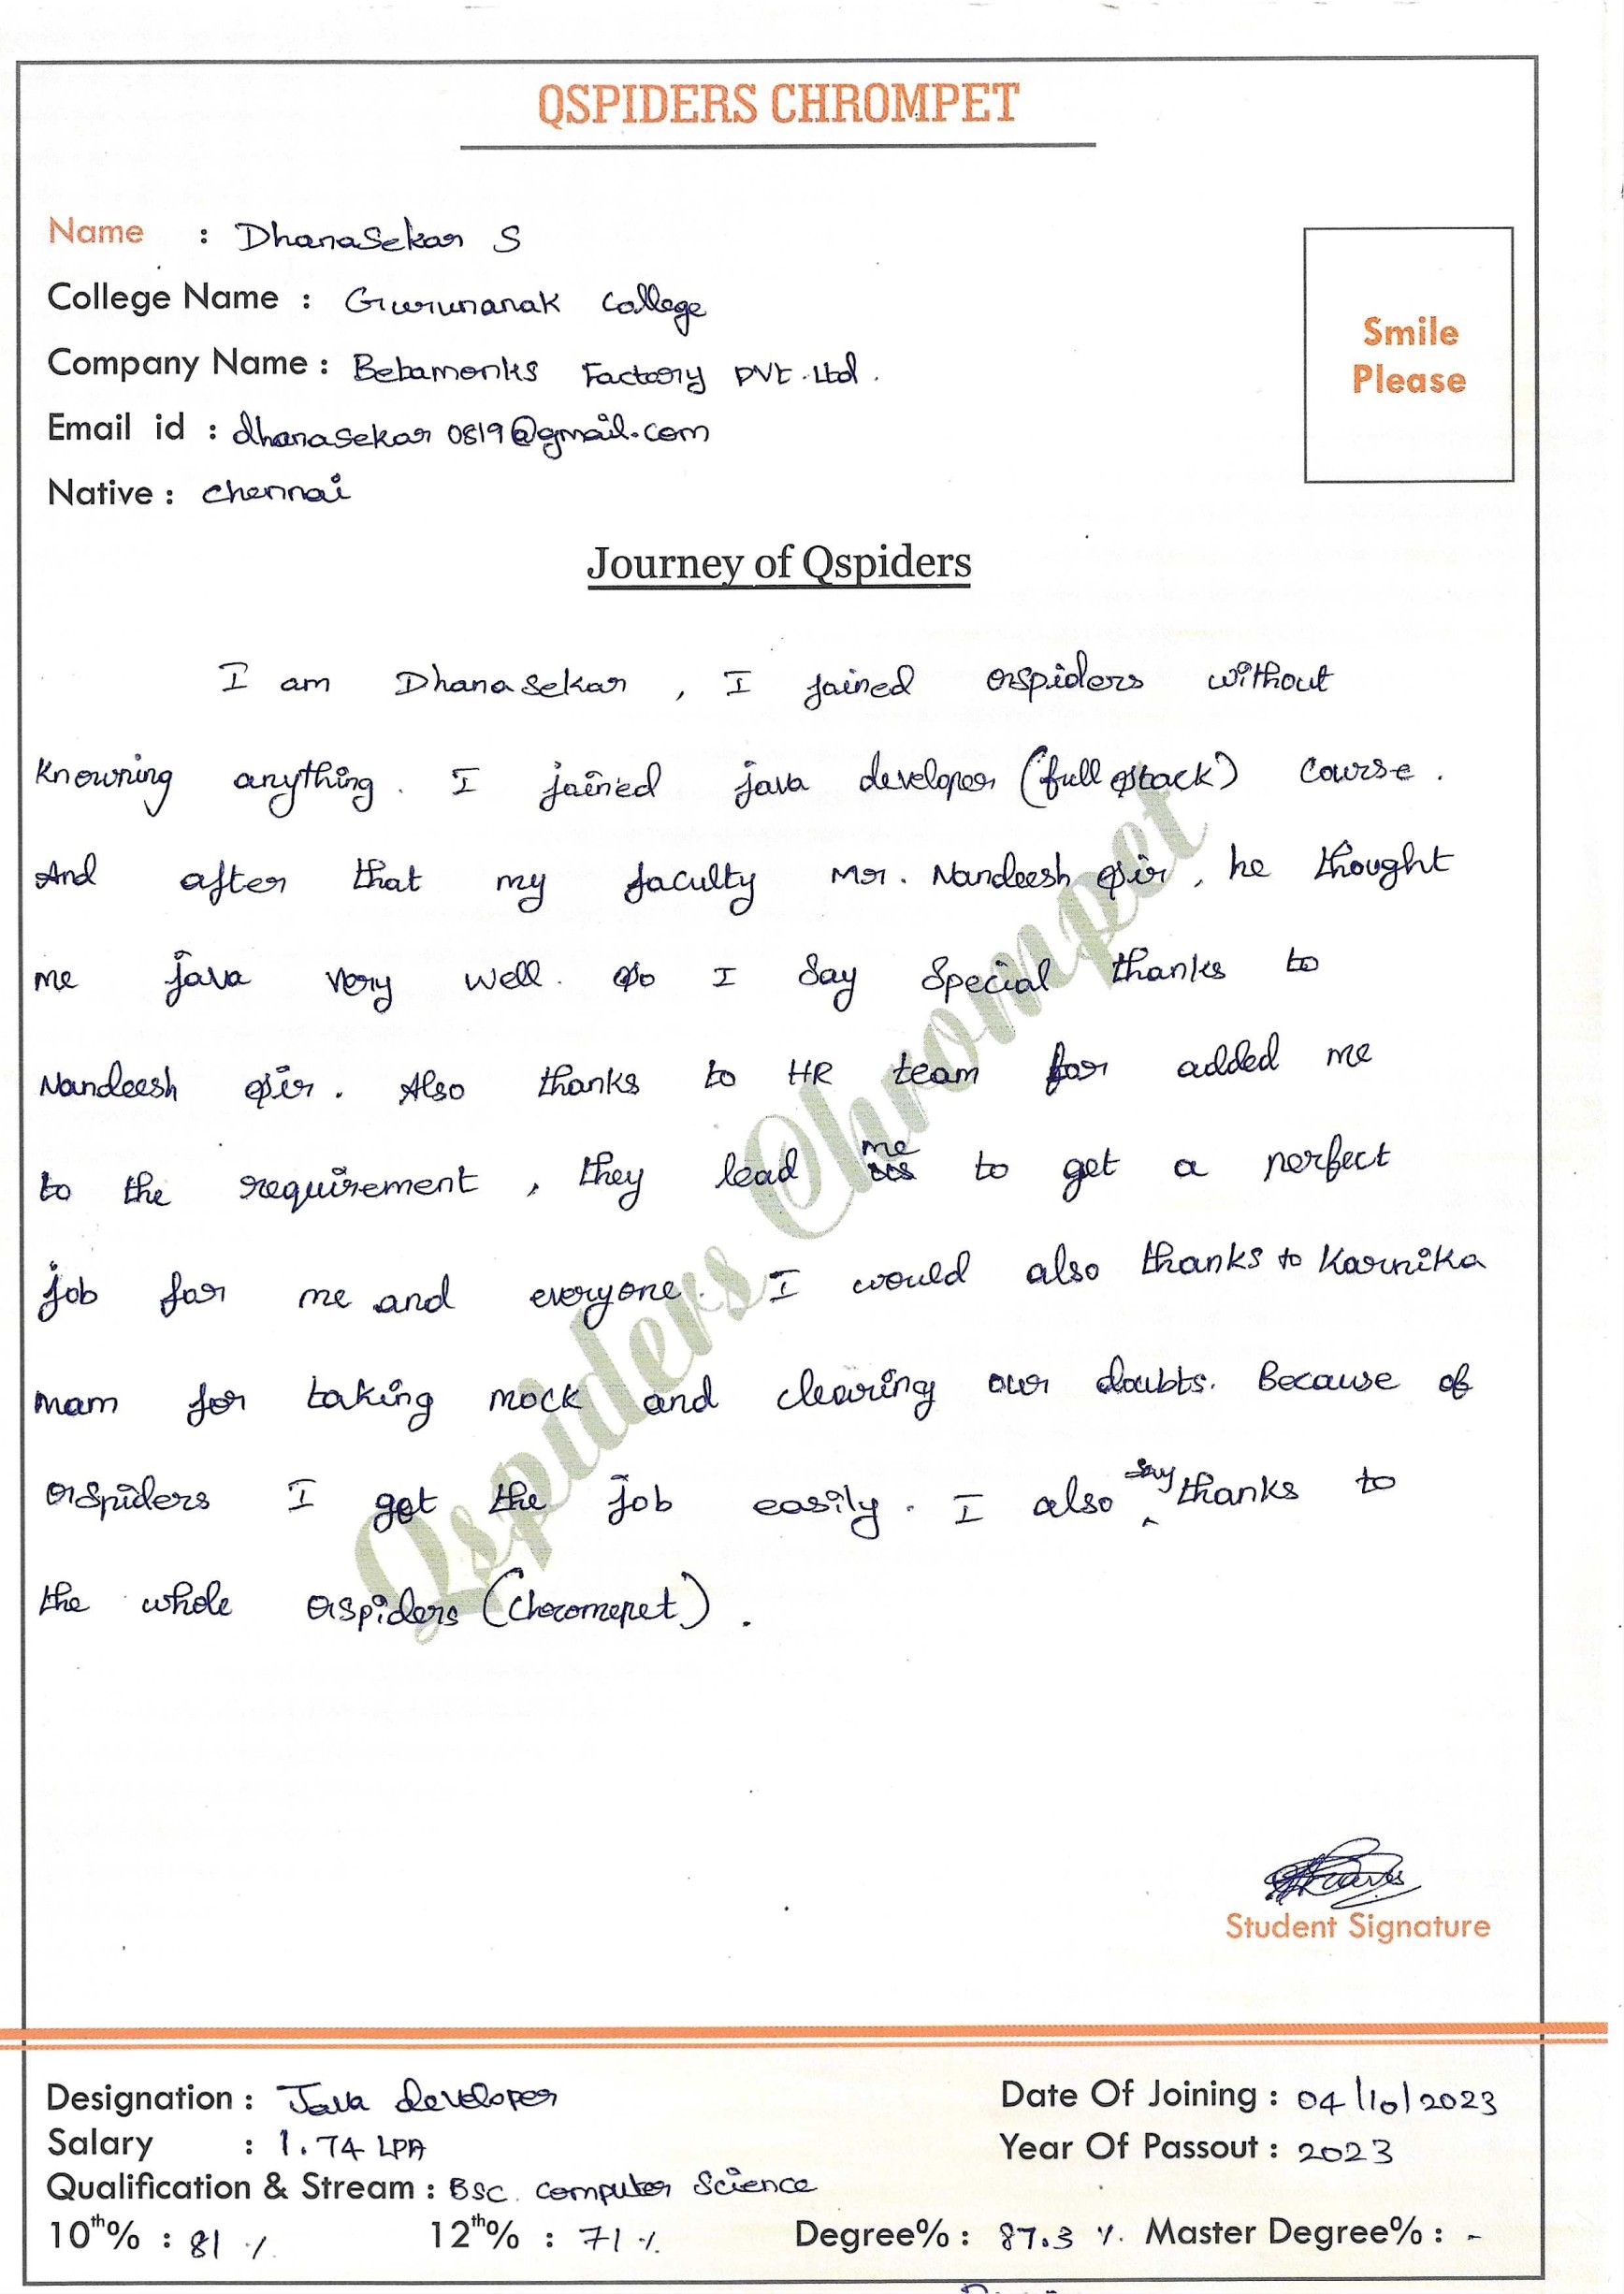 QSPIDERS CHROMPET
Name : Dhanasekar S
College Name : Gurunanak College
Company Name : Betamonks Factory Pvt. Ltd.
Email id : dhanasekar0819@gmail.com
Native : Chennai
Smile
Please
Journey of Qspiders
I am Dhanasekar, I joined Qspiders without
knowning anything. I joined java developer (full stack) course.
And after that my faculty Mr. Nandeesh sir, he thought
me java very well. So I say special thanks to
Nandeesh sir. Also thanks to HR team for added me
to the requirement, they lead me to get a perfect
job for me and everyone. I would also thanks to Karnika
mam for taking mock and clearing our doubts. Because of
Qspiders I get the job easily. I also say thanks to
the whole Qspiders (Chromepet).
Qspiders Chrompet
Student Signature
Designation : Java developer
Date Of Joining : 04/10/2023
Salary : 1.74 LPA
Year Of Passout : 2023
Qualification & Stream : Bsc. Computer Science
10th% : 81 % 12th% : 71 % Degree% : 87.3 % Master Degree% : -